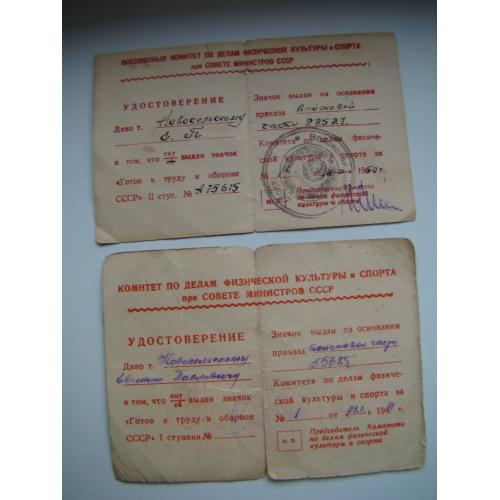 ВСЕСОЮЗНЫЙ КОМИТЕТ ПО ДЕЛАМ ФИЗИЧЕСКОЙ КУЛЬТУРЫ и СПОРТА
при СОВЕТЕ МИНИСТРОВ СССР
УДОСТОВЕРЕНИЕ
Дано т. Новосельскому
Е. П.
в том, что ему выдан значок
«Готов к труду и обороне
СССР» II ступ. № 175615
Значок выдан на основании
приказа войсковой
части 22521
Комитета по делам физической
культуры и спорта за
№ от 1950 г.
М. П.
Председатель Комитета
по делам физической
культуры и спорта
КОМИТЕТ ПО ДЕЛАМ ФИЗИЧЕСКОЙ КУЛЬТУРЫ И СПОРТА
при СОВЕТЕ МИНИСТРОВ СССР
УДОСТОВЕРЕНИЕ
Дано т. Новосельскому
Евгению Павловичу
в том, что ему/ей выдан значок
«Готов к труду и обороне
СССР» I ступени №
Значок выдан на основании
приказа войсковой части
55685
Комитета по делам физиче-
ской культуры и спорта за
№ 1 от 194 г.
М. П.
Председатель Комитета
по делам физической
культуры и спорта